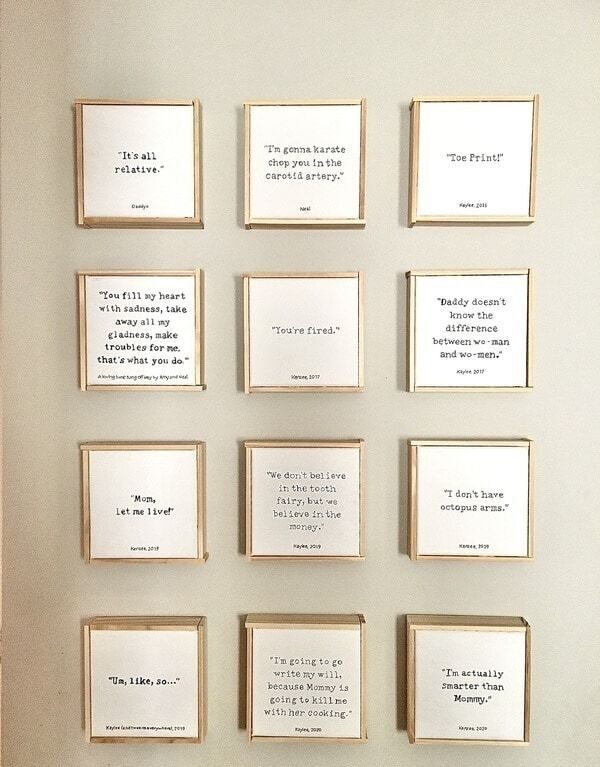 "It's all
relative."
"I'm gonna karate
chop you in the
carotid artery."
Neal
"Toe Print!"
Kaylee, 2011
"You fill my heart
with sadness, take
away all my
gladness, make
troubles for me,
that's what you do."
A loving tune sung off key by Amy and Neal
"You're fired."
Kensee, 2017
"Daddy doesn't
know the
difference
between wo-man
and wo-men."
Kaylee 2017
"Mom,
let me live!"
Kensee, 2019
"We don't believe
in the tooth
fairy, but we
believe in the
money."
Kaylee, 2019
"I don't have
octopus arms."
Kensee, 2019
"Um, like, so..."
Kaylee 2019
"I'm going to go
write my will,
because Mommy is
going to kill me
with her cooking."
Kaylee, 2020
"I'm actually
smarter than
Mommy."
Kensee, 2020